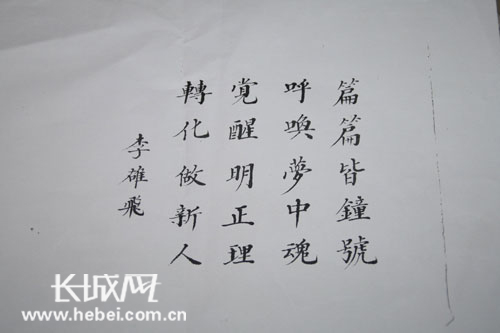 篇篇皆鐘號
呼喚夢中魂
覚醒明正理
轉化做新人
李雄飛
长城网
www.hebei.com.cn